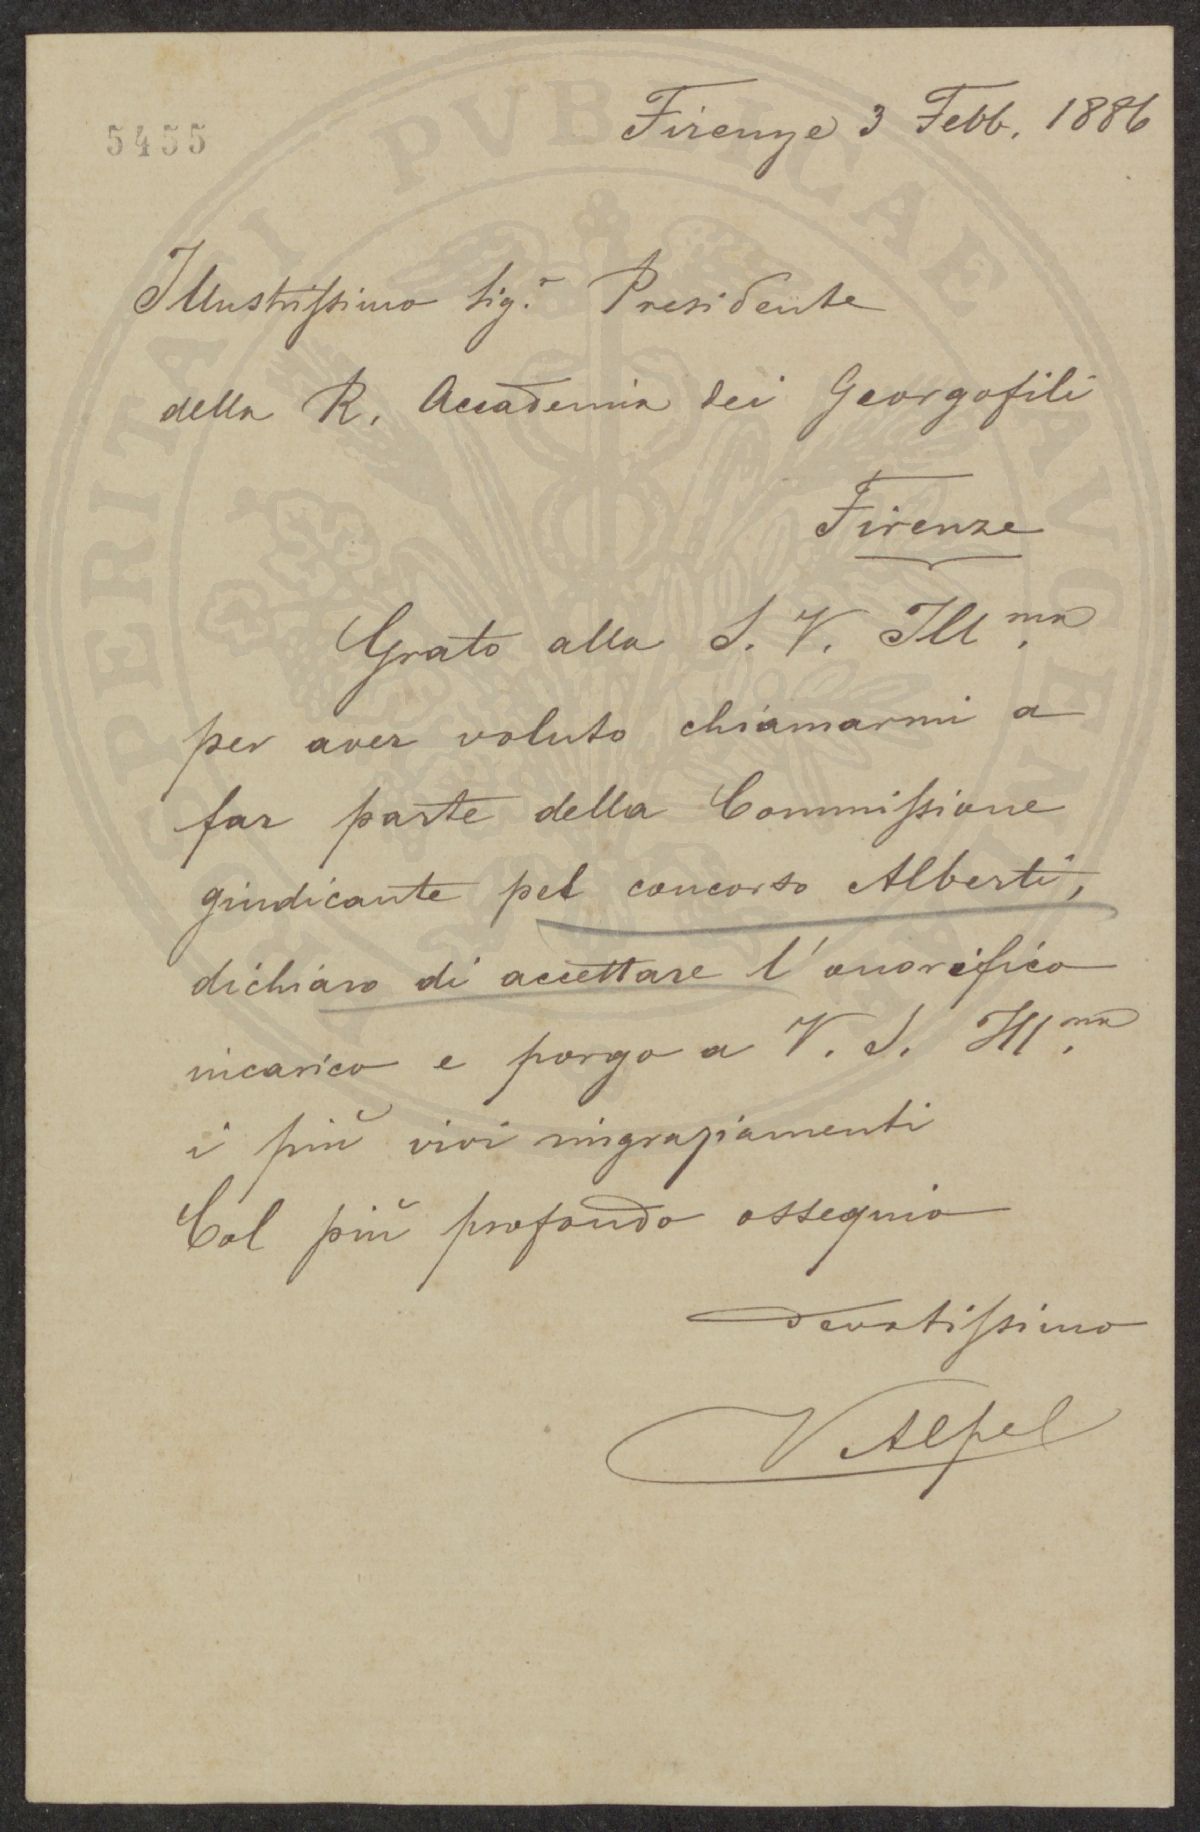 PROSPERITATI PVBLICAE AVGENDAE
5455
Firenze 3 Febb. 1886
Illustrissimo Sig.r Presidente
della R. Accademia dei Georgofili
Firenze
Grato alla S. V. Ill.ma
per aver voluto chiamarmi a
far parte della Commissione
giudicante pel concorso Alberti,
dichiaro di accettare l'onorifico
incarico e porgo a V. S. Ill.ma
i più vivi ringraziamenti
Col più profondo ossequio
devotissimo
V Alpe